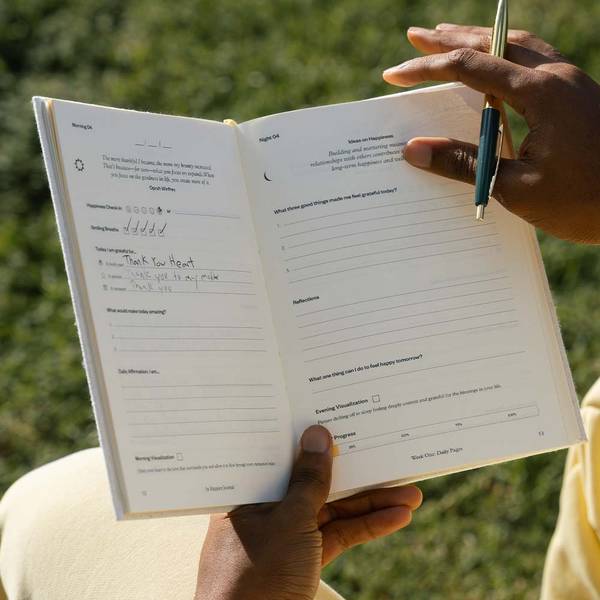 Morning 04
The more thankful I became, the more my bounty increased.
That's because—for sure—what you focus on expands. When
you focus on the goodness in life, you create more of it.
Oprah Winfrey
Happiness Check-in
Smiling Breaths
Today I am grateful for...
Thank You Heart
Thank you to my
Thank you
What would make today amazing?
1
2
3
Daily Affirmation: I am...
Morning Visualization
52
Night 04
Ideas on Happiness
Building and nurturing
relationships with others contributes
long-term happiness and
What three good things made me feel grateful today?
1
2
3
Reflections
What one thing can I do to feel happy tomorrow?
Evening Visualization
drifting off to sleep feeling deeply content and grateful for the blessings in your life.
Progress
25%
50%
75%
100%
Week One: Daily Pages
53